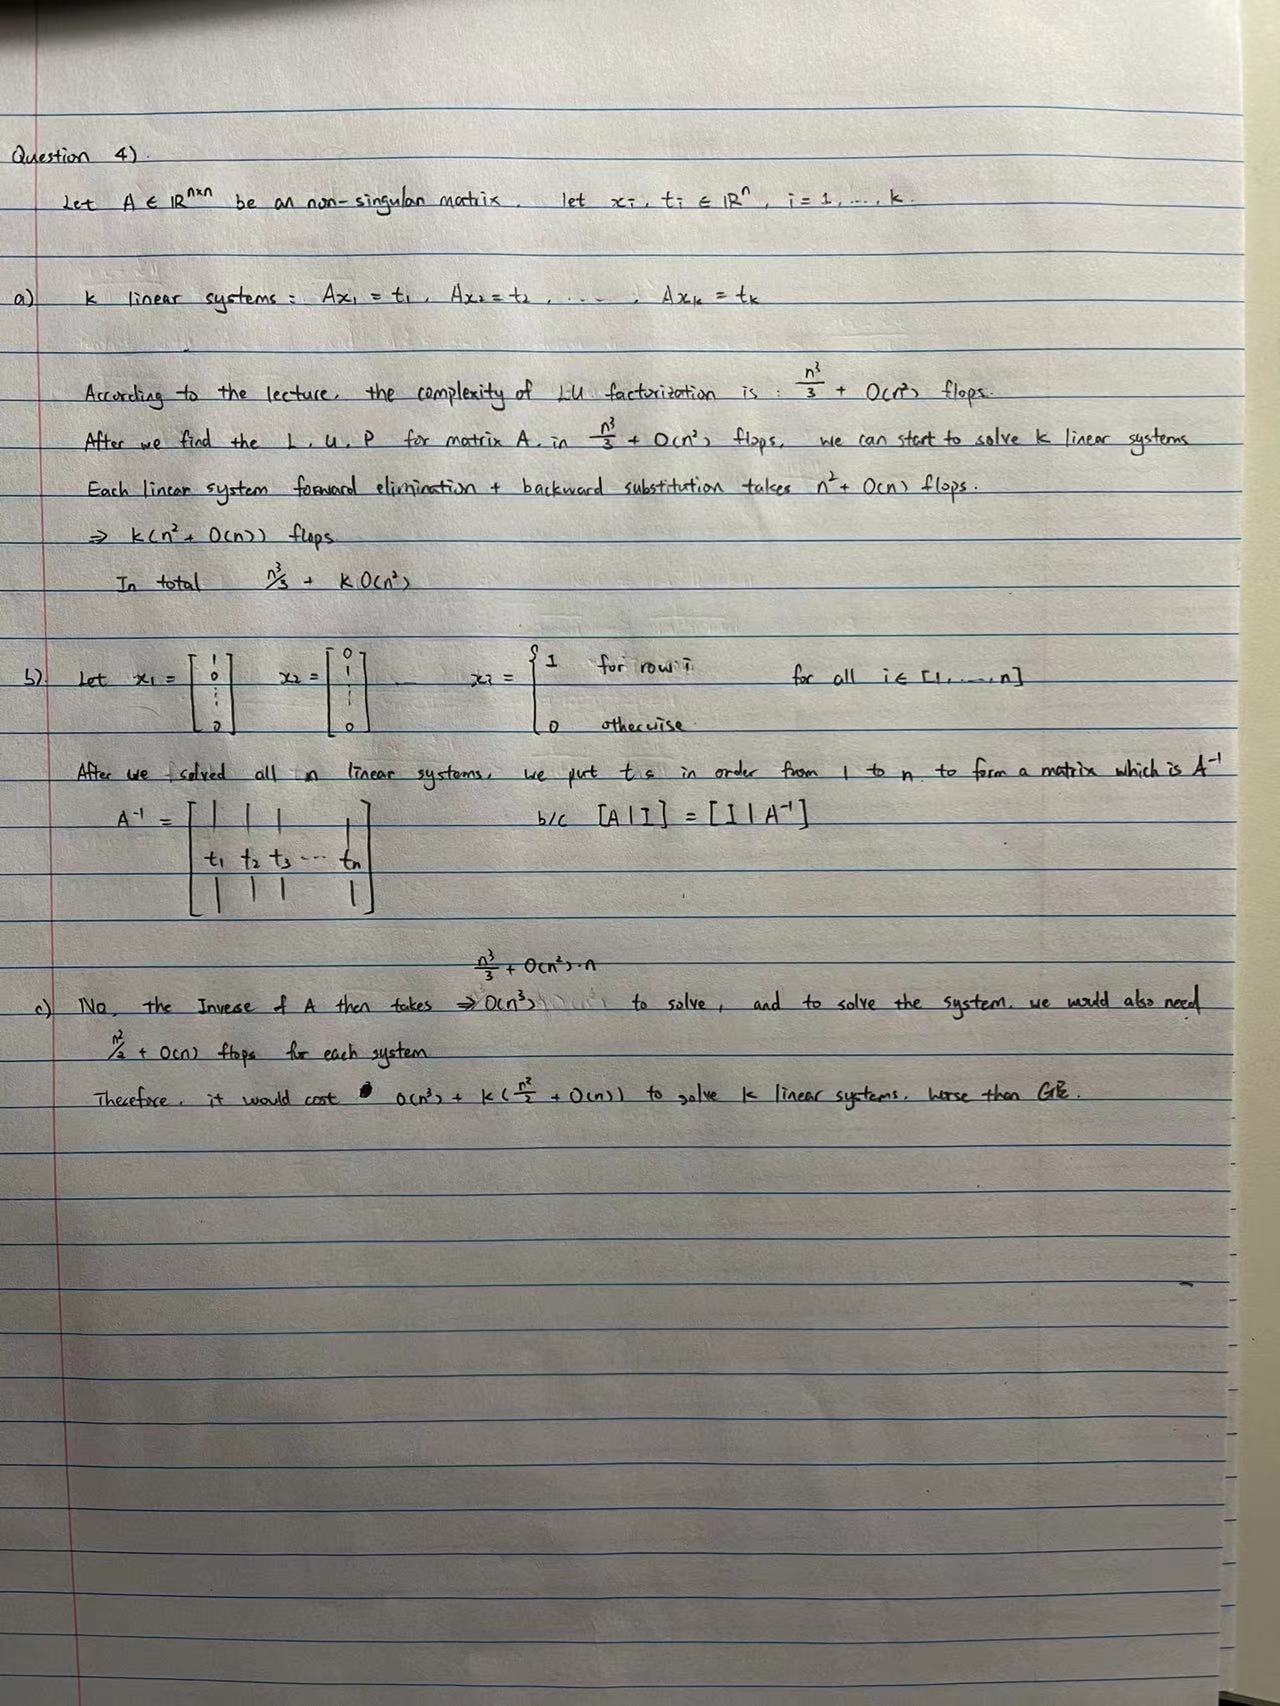 Question 4).
Let A ∈ ℝⁿˣⁿ be an non-singular matrix. let xᵢ, tᵢ ∈ ℝⁿ, i = 1, ..., k.
a) k linear systems: Ax₁ = t₁, Ax₂ = t₂, ....., Axₖ = tₖ
According to the lecture, the complexity of LU factorization is: n³/3 + O(n²) flops.
After we find the L, U, P for matrix A, in n³/3 + O(n²) flops, we can start to solve k linear systems
Each linear system forward elimination + backward substitution takes n² + O(n) flops.
⇒ k(n² + O(n)) flops
In total n³/3 + k O(n²)
b) Let x₁ = [1 0 ⋮ 0] x₂ = [0 1 ⋮ 0] ... xᵢ = { 1 for row i 0 otherwise for all i ∈ [1, ..., n]
After we solved all n linear systems, we put ts in order from 1 to n to form a matrix which is A⁻¹
A⁻¹ = [t₁ t₂ t₃ ... tₙ] b/c [A|I] = [I|A⁻¹]
n³/3 + O(n²)·n
c) No, the Inverse of A then takes ⇒ O(n³) to solve, and to solve the system, we would also need
n²/2 + O(n) flops for each system
Therefore, it would cost O(n³) + k(n²/2 + O(n)) to solve k linear systems, worse than GE.